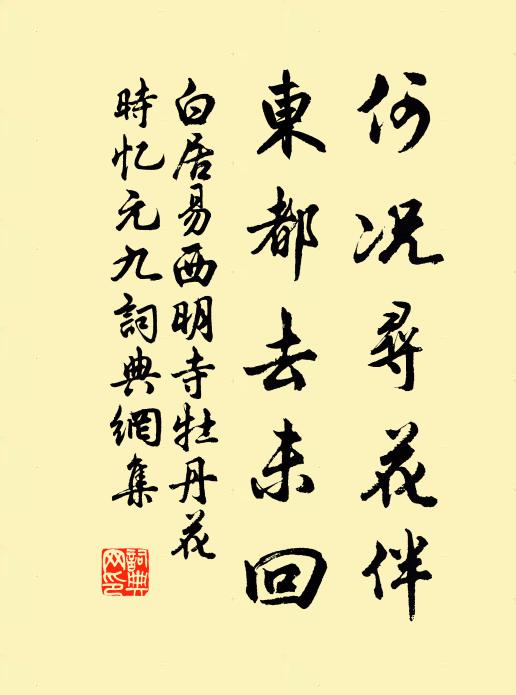 何况尋花伴
東都去未回
白居易西明寺牡丹花
時忆元九詞典網集
詞典
网印